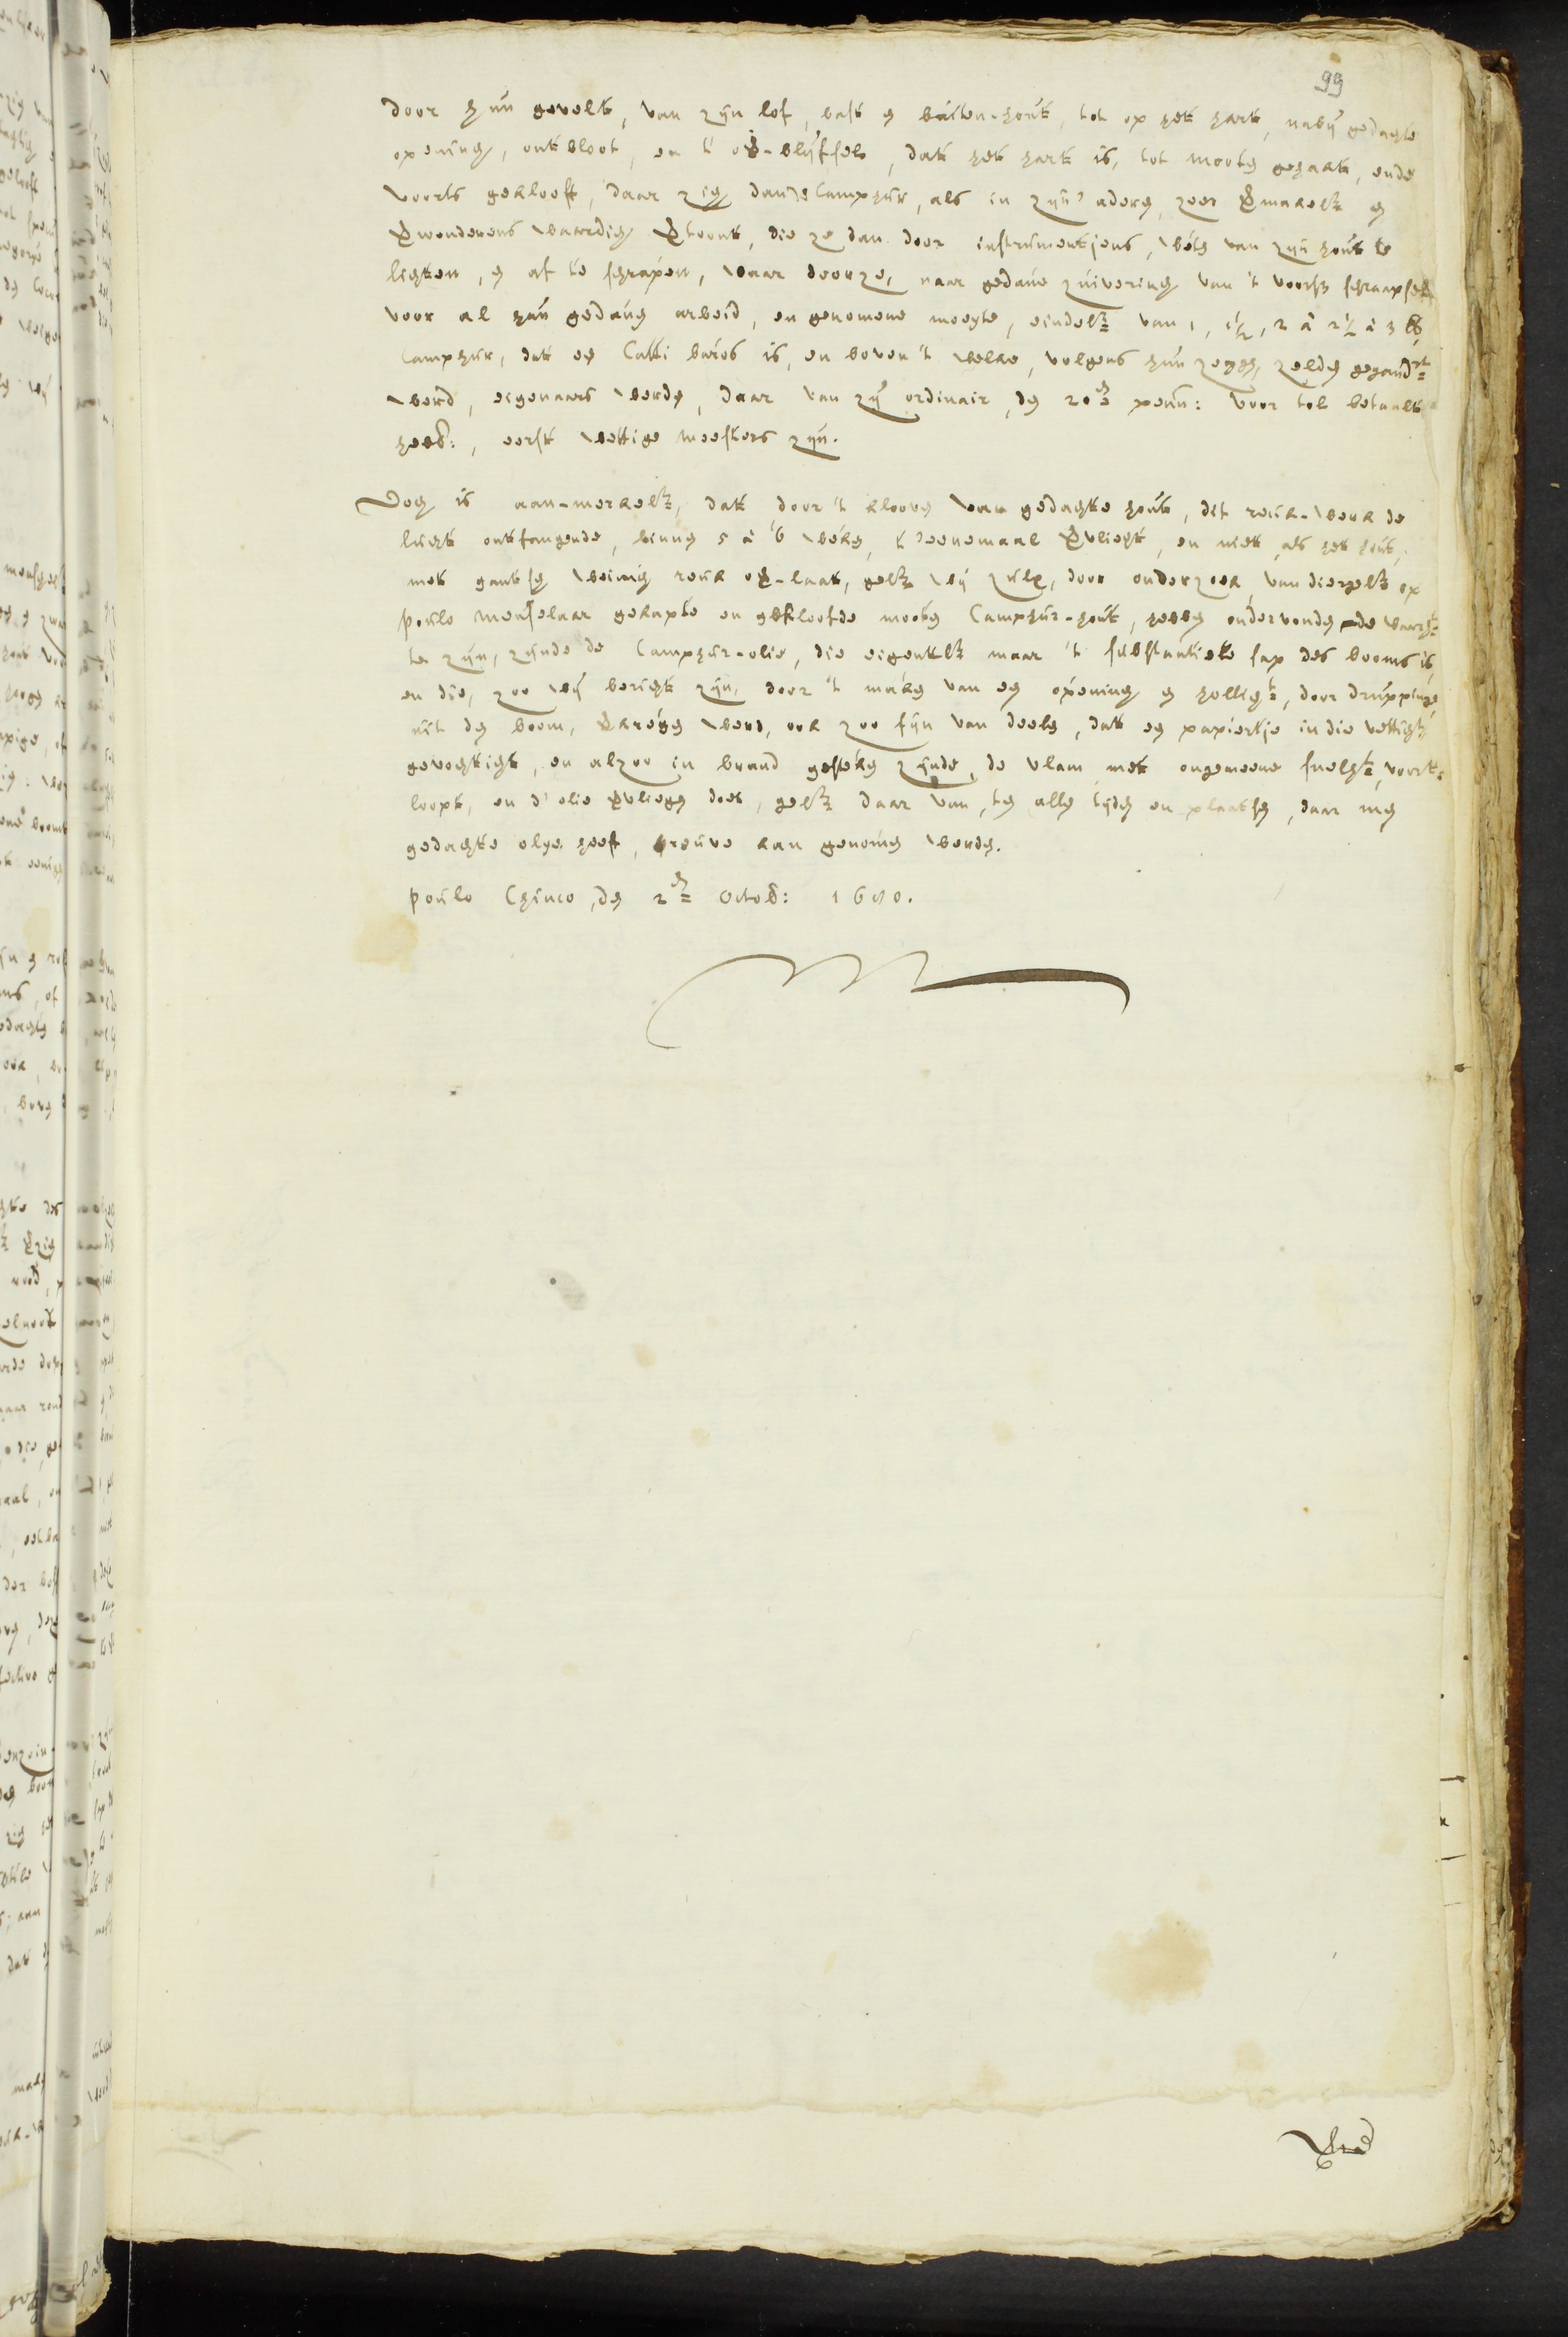 99
door hun gevelt, van zijn lof, bast en buiten-hout, tot op het hart, nabij gedagte
opening, ontbloot, en 't overblijfsel, dat het hart is, tot mooten gehakt, ende
voorts geklooft, daar zig dan de Camphur, als in zijn' aderen, zeer vermakelk en
verwonderens waardig vertoont, die ze dan door instrumentjens, weten van zijn hout te
ligten, en af te schrapen, waar door ze, naar gedane zuivering van 't voorsz schraapsel
voor al hun gedaan arbeid, en genomene moeyte, eindelk van 1, 1½, 2 â 2½ â 3 lb
Camphur, dat een Catti baros is, en boven 't welke, volgens hun zeggen, zelden gegand.rt
werd, eigenaars werden, daar van zij ordinair den 20en penn: voor tol betaalt
hebb:, eerst wettige meesters zijn.
Dog is aan-merkelk, dat door 't klooven van gedagte hout, dit reuk-werk de
lucht ontfangende, binnen 5 â 6 weken, t'eenemaal vervliegt, en niet, als het hout,
met gantsch weinig reuk over-laat, gelk wij zulx, door onderzoek, van diergelk op
poulo Menselaar gekapte en gekloofde mooten Camphur-hout, hebben ondervonden de waarht
te zijn, zijnde de Camphur-olie, die eigentlk maar 't substantiele sap des booms is,
en die, zoo wij berigt zijn, door 't maken van een opening en holligt, door druppinge,
uit den boom, verkregen werd, ook zoo fijn van deelen, dat een papiertje in die vettight
gevochtigt, en alzoo in brand gesteken zijnde, de vlam met ongemeene snelht, voort-
loopt, en d'olie vervliegen doet, gelk daar van, ten allen tijden en plaatsen, daar men
gedagte olye heeft, preuve kan genomen werden.
poulo Chinco, den 2en Octob: 1680.